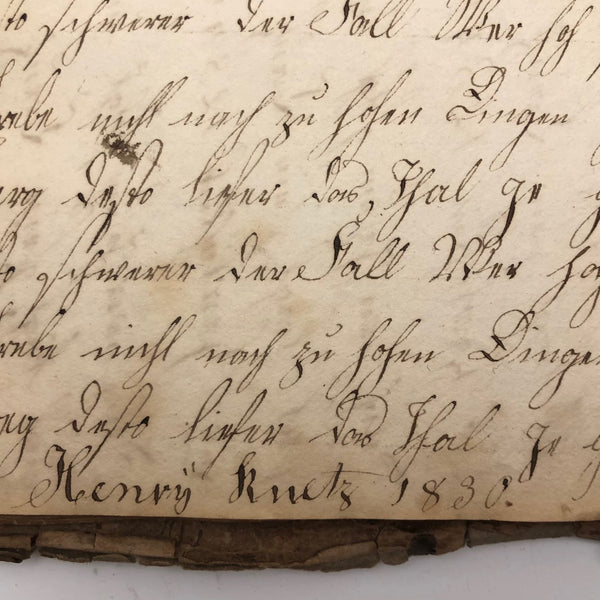 sto schwerer der Fall Wer hoh
trebe nicht nach zu hohen Dingen
erg desto tiefer das Thal Je g
sto schwerer der Fall Wer ho
trebe nicht nach zu hohen Dingen
eg desto tiefer das Thal Je g
Henrÿ Kuetz 1830.